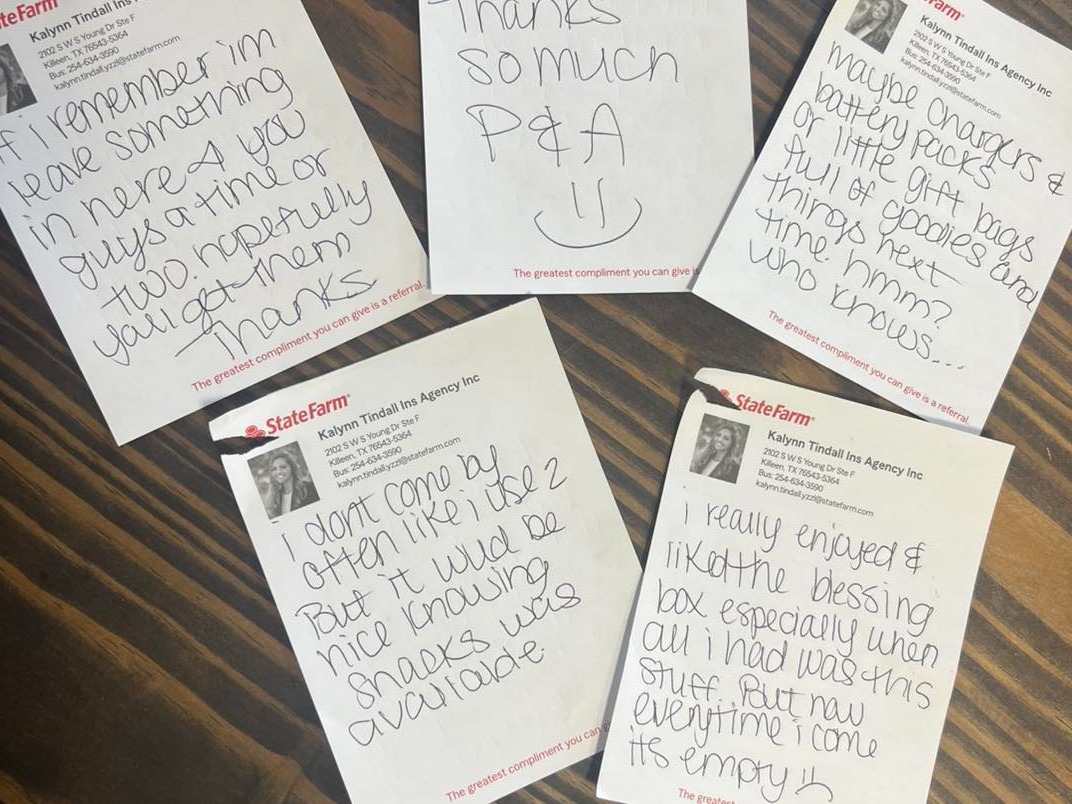 teFarm
Kalynn Tindall Ins
2102 S W S Young Dr Ste F
Killeen, TX 76543-5364
Bus: 254-634-3590
kalynn.tindall.yzzl@statefarm.com
if i remember im
leave something
in here 4 you
guys a time or
two. hopefully
yall get them
Thanks
The greatest compliment you can give is a referral.
Thanks
so much
P & A
The greatest compliment you can give i
Farm®
Kalynn Tindall Ins Agency Inc
2102 S W S Young Dr Ste F
Killeen, TX 76543-5364
Bus: 254-634-3590
kalynn.tindall.yzzl@statefarm.com
maybe chargers &
battery packs
or little gift bags
full of goodies and
things next
time. hmm?
who knows...
The greatest compliment you can give is a referral.
StateFarm®
Kalynn Tindall Ins Agency Inc
2102 S W S Young Dr Ste F
Killeen, TX 76543-5364
Bus: 254-634-3590
kalynn.tindall.yzzl@statefarm.com
i dont come by
often like i use 2
But it wud be
nice knowing
snacks was
available.
The greatest compliment you can g
StateFarm®
Kalynn Tindall Ins Agency Inc
2102 S W S Young Dr Ste F
Killeen, TX 76543-5364
Bus: 254-634-3590
kalynn.tindall.yzzl@statefarm.com
i really enjoyed &
liked the blessing
box especially when
all i had was this
stuff. But now
everytime i come
its empty
The greates